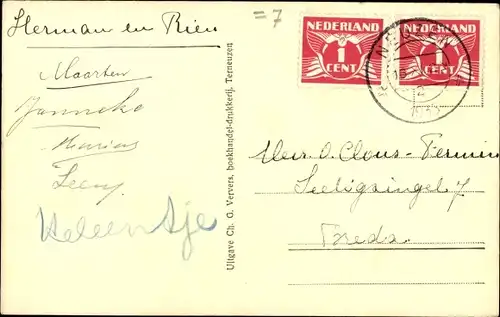 Herman en Rien
=7
Maarten
Janneke
Marius
Leny
Heleentje
Uitgave Ch. G. Ververs, boekhandel-drukkerij, Terneuzen
NEDERLAND
1
CENT
NEDERLAND
1
CENT
Seeligsingel 7
Breda